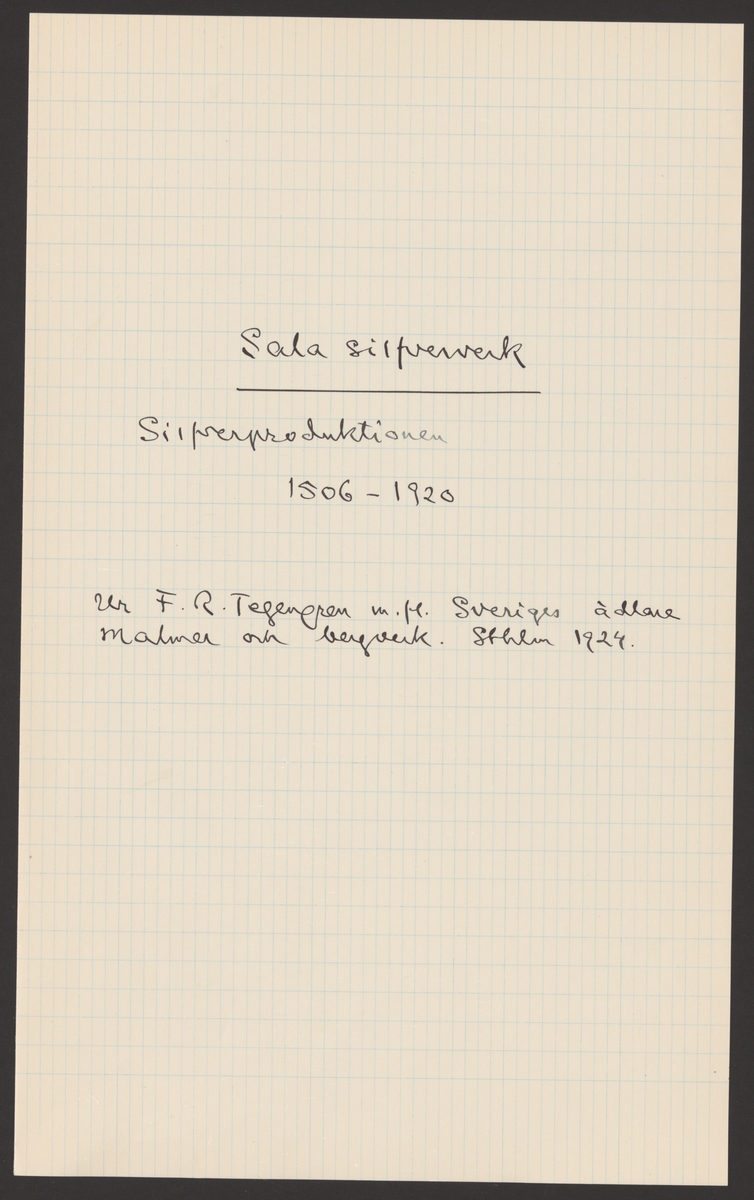 Sala silfververk
Silfverproduktionen
1506 – 1920
Ur F. R. Tegengren m. fl. Sveriges ädlare
malmer och bergverk. Sthlm 1924.